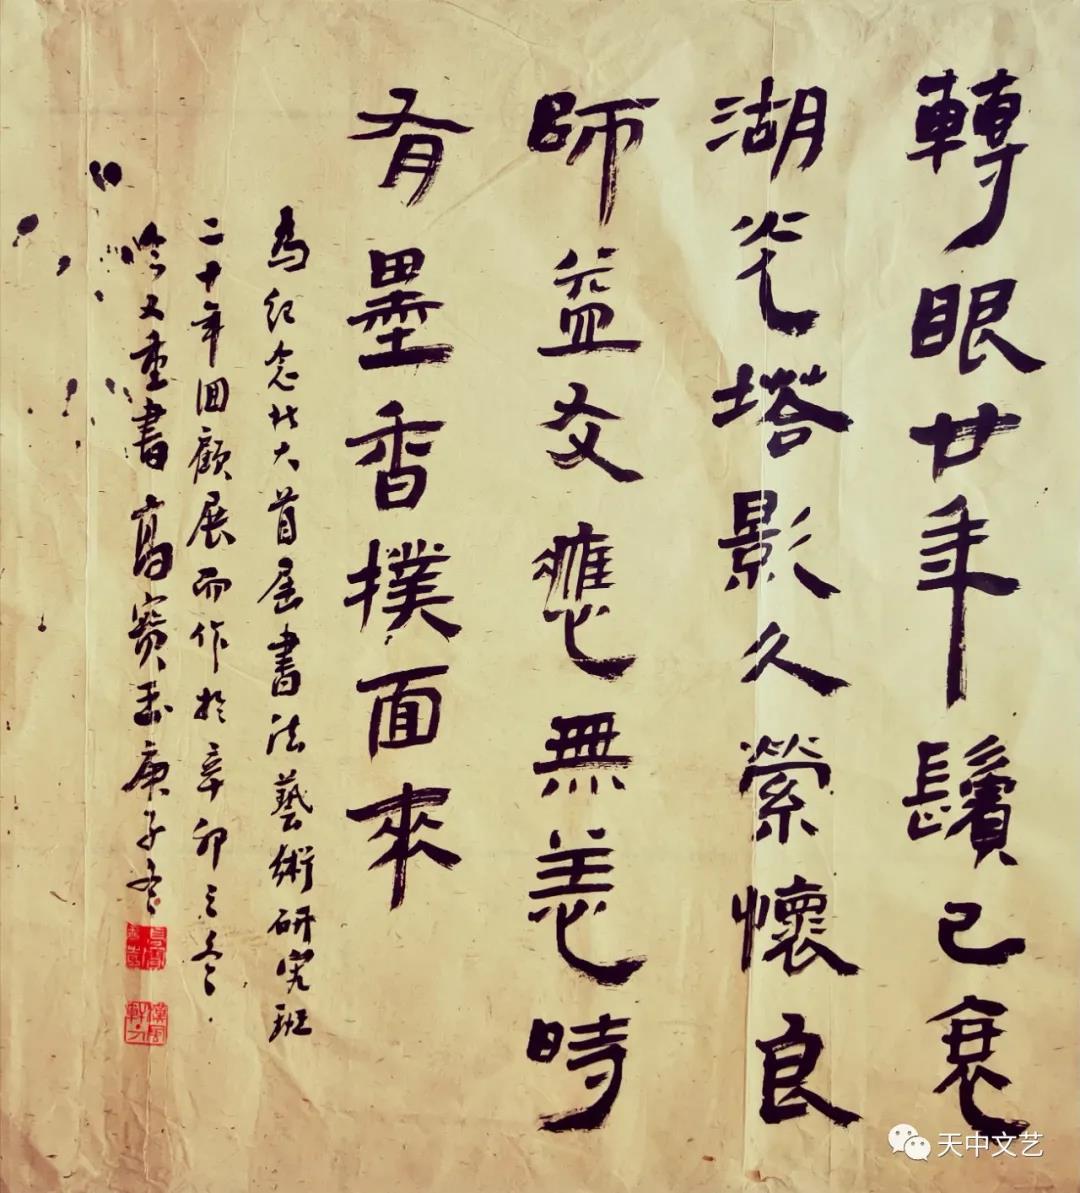 轉眼廿年鬢已衰
湖光塔影久縈懷良
師益友應無恙時
有墨香撲面來
為紀念北大首屆書法藝術研究班
二十年回顧展而作於辛卯之冬
吟又重書高寶玉庚子冬
天中文艺